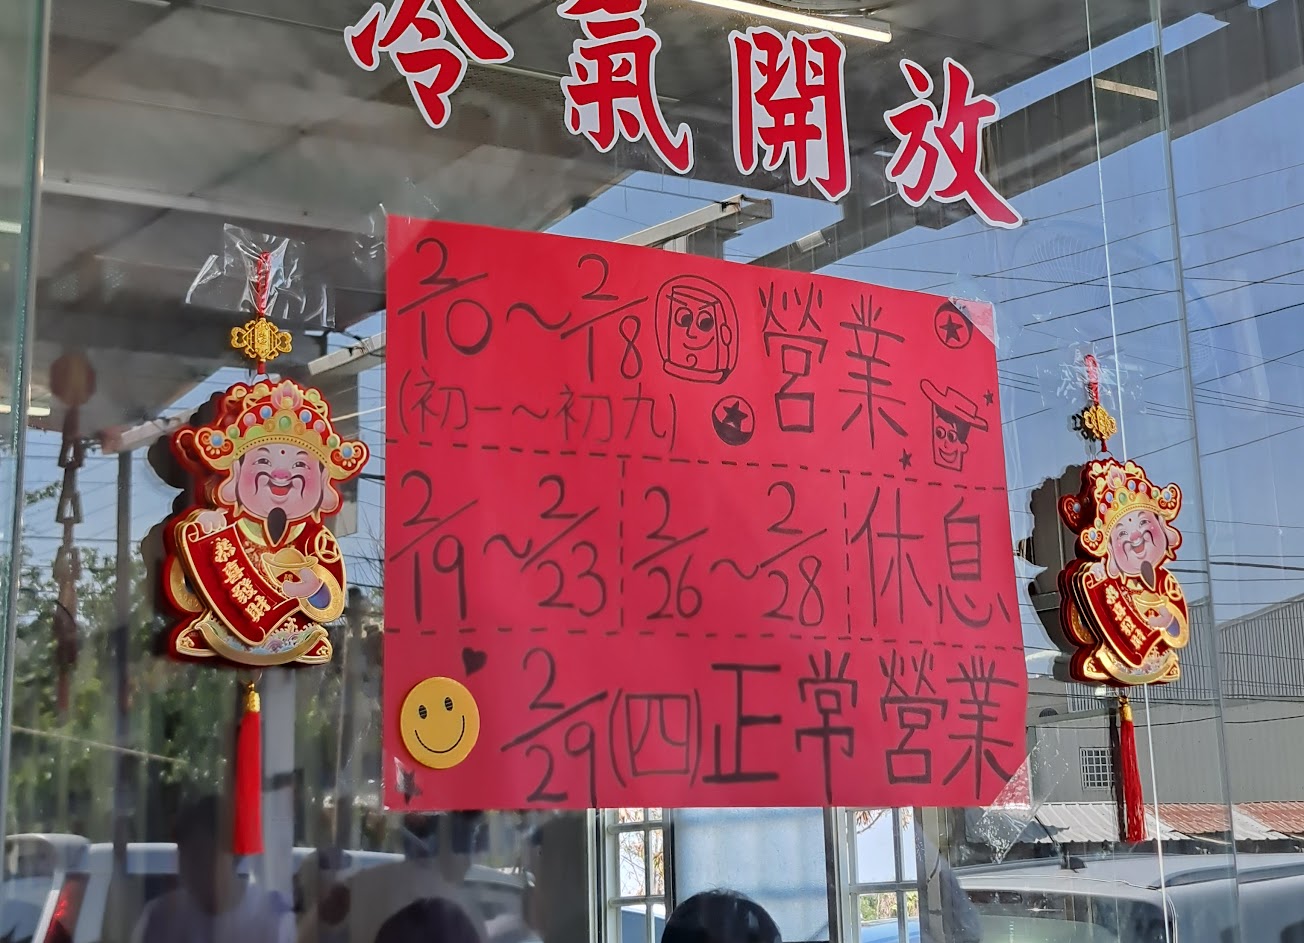 冷氣開放
2/10～2/18 營業
(初一～初九)
2/19～2/23 2/26～2/28 休息
2/29(四)正常營業
恭喜發財
恭喜發財